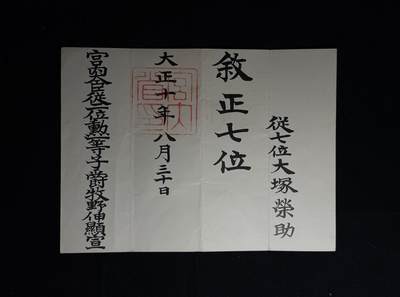 從七位大塚榮助
敘正七位
大正十年八月三十日
宮內大臣從二位勳一等子爵牧野伸顯宣